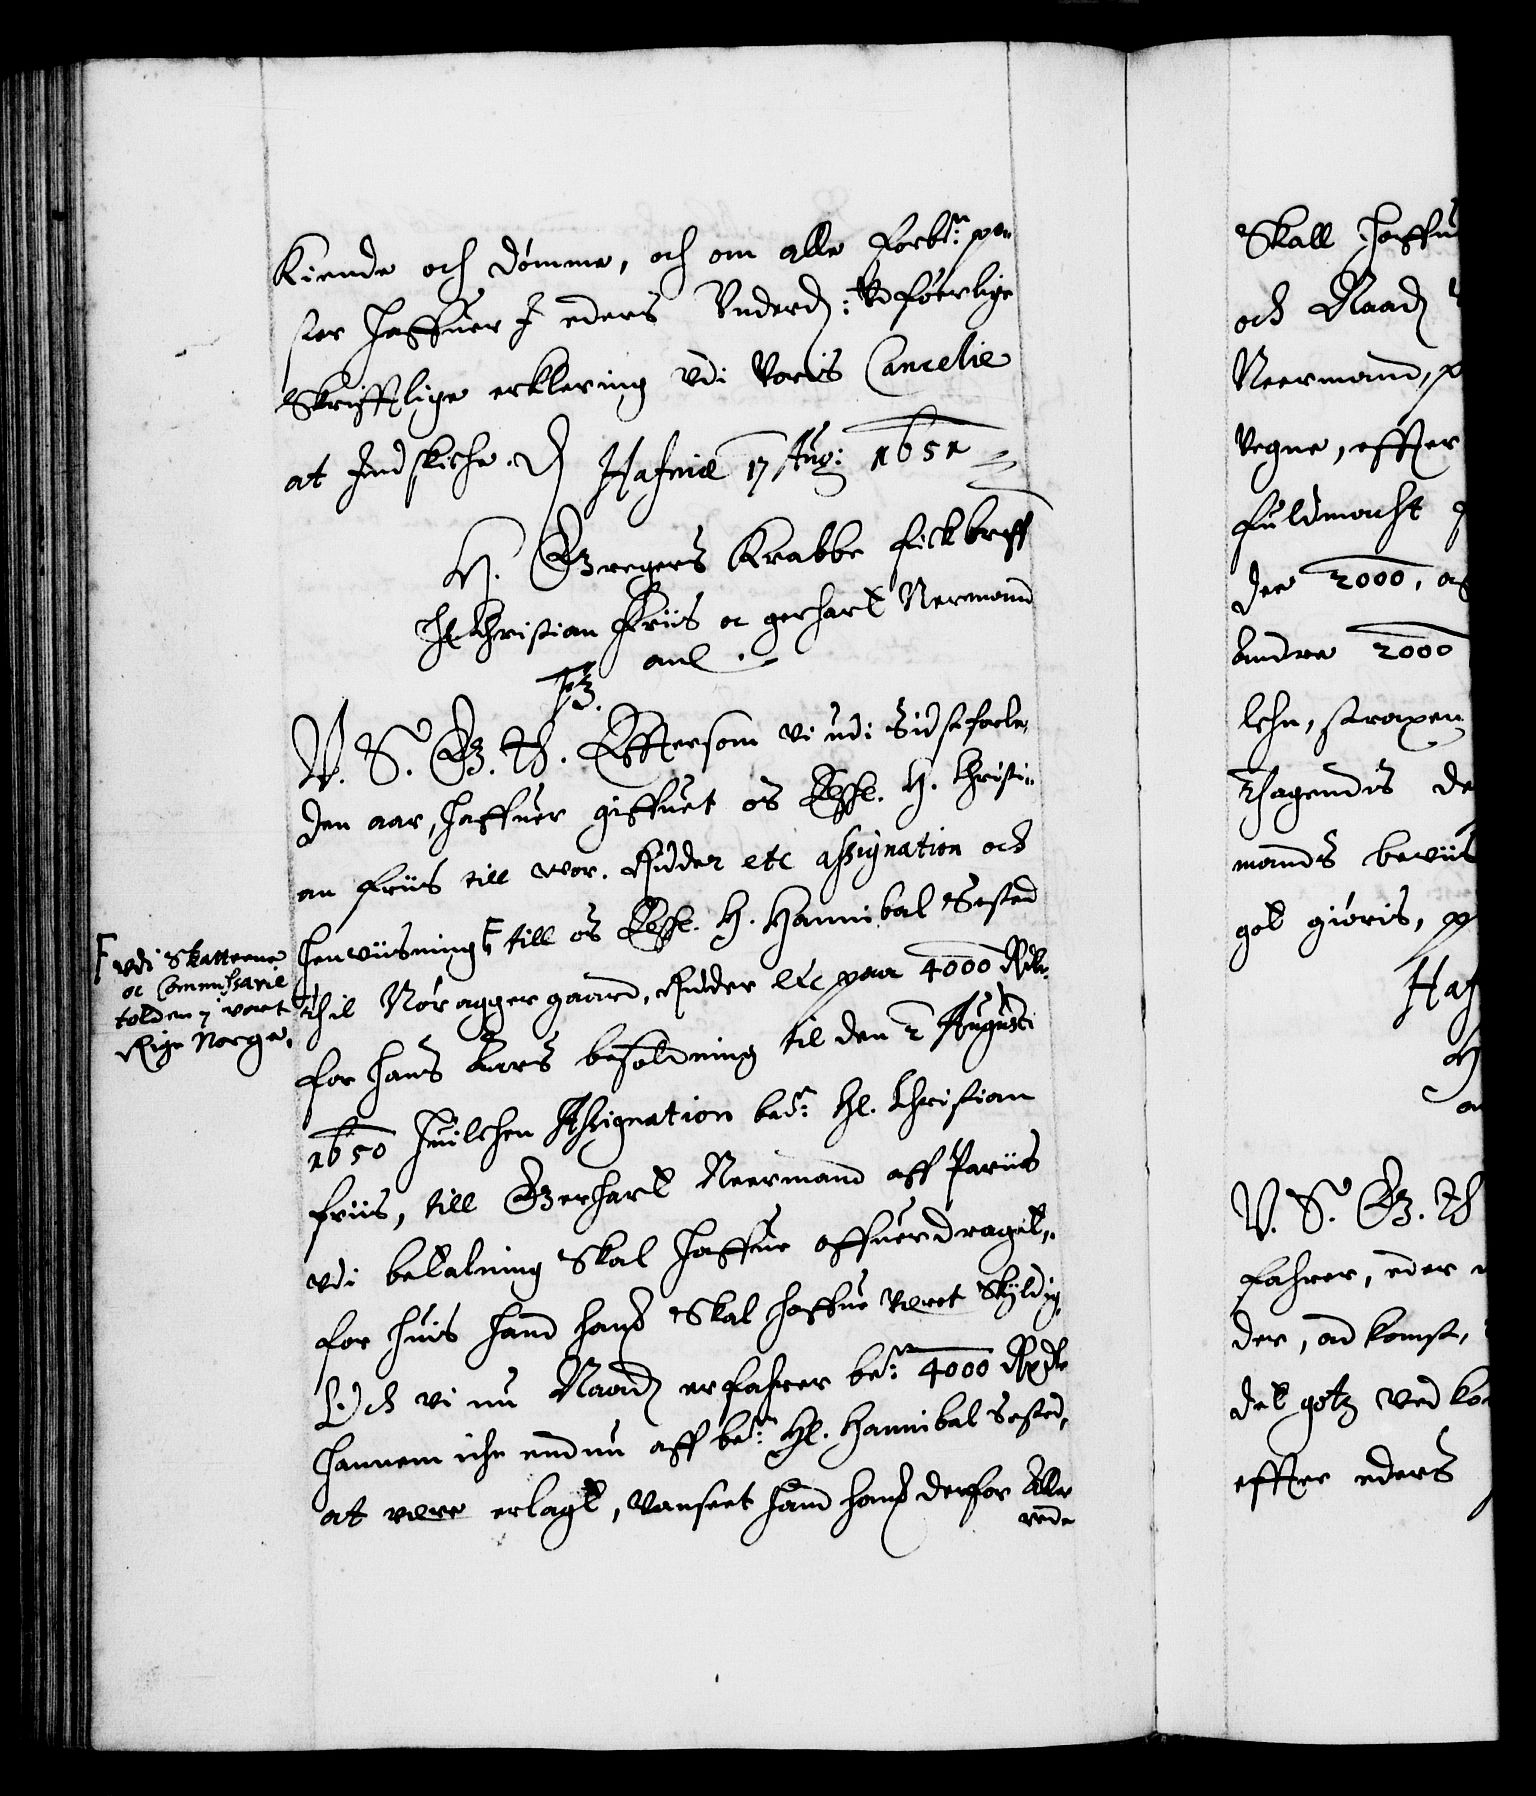 Kiende och dømme, och om alle Forbe.ne po-
ster haffuer I eders Underd: Udførlige
Skrifftlige erklering udi Voris Cancelie
at Indskiche. D Hafniæ 17 Aug: 1651
H. Gregers Krabbe fick breff
Hl Christian Friis oc gerhart Nermand
anl.
F3.
V. S. G. th. Effttersom vi udi Sidstforle,
den aar, haffuer giffuet os Elsk. H. Christi-
an Friis till vor. Ridder etc Assignation och
henviisning F till os Elsk. H. Hannibal Sested
thil Nøraggergaard, Ridder etc paa 4000 Rdr.
for hans Aars besoldning til den 2 Augusti
1650 huilchen Assignation bede: Hl. Christian
friis, till Gerhart Neermand aff Pariis
udi betalning Skal haffue offuerdraget,
for huis hand hans Skal haffue veret Skyldig,
Och vi nu Naad erfahrer be.te 4000 Rixdr
hannem iche endnu aff be.te Hl. Hannibal Sested,
at vere erlagt, Uanseet hand hans derfor Alle
rede
F udi Skatterne
oc Commissarie
tolden i vort
Rige Norge,
Skall haffu
och Naad
Neermand, p
Vegne, effter
fuldmacht
der 2000, a
Andre 2000
lehn, straxen
Thagendis de
mands beviis
got giøris, p
Haf
H
V. S. G. th
fahrer, eder
der, ad komst,
det gotz ved ko
effter eders